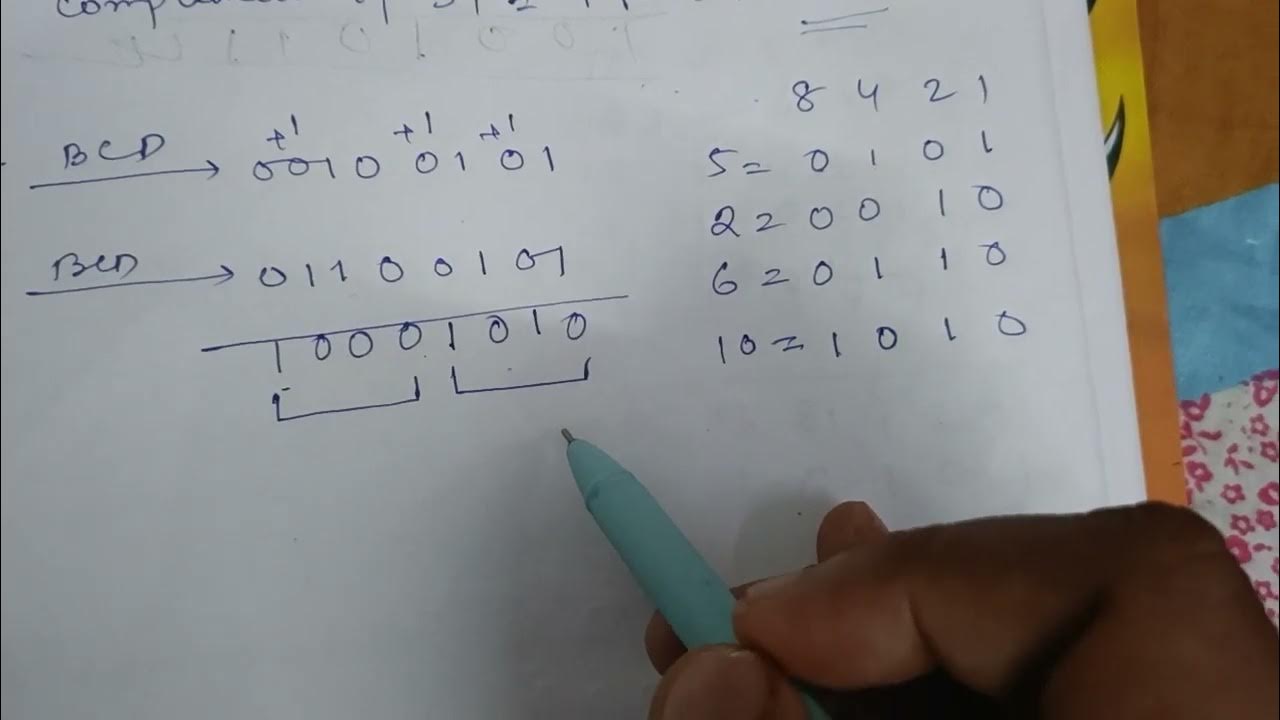 +1 +1 +1
BCD → 0010 0101
BCD → 01100101
10001010
8 4 2 1
5 = 0 1 0 1
2 = 0 0 1 0
6 = 0 1 1 0
10 = 1 0 1 0